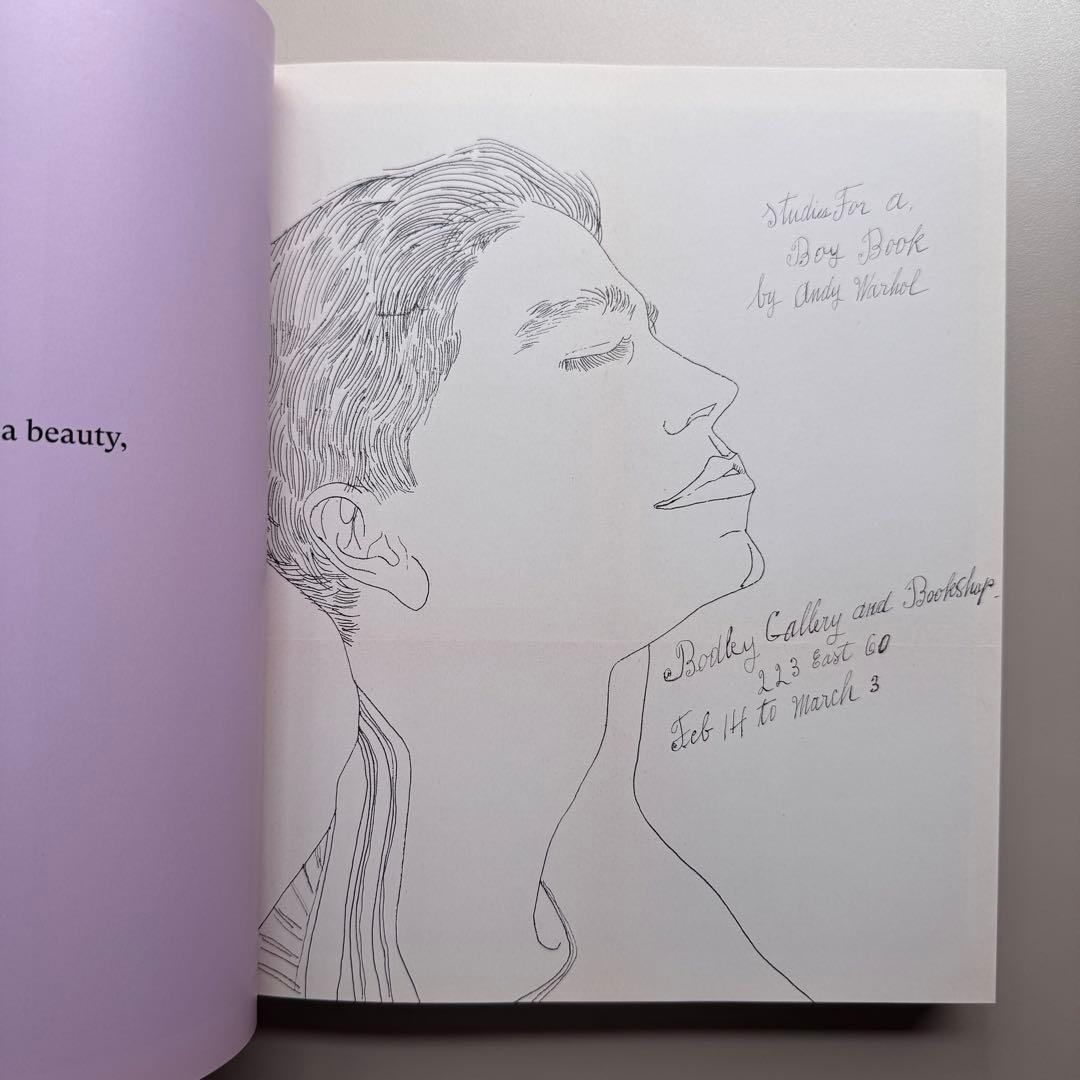 a beauty,
Studies For a.
Boy Book
by Andy Warhol
Bodley Gallery and Bookshop.
223 East 60
Feb 14 to March 3